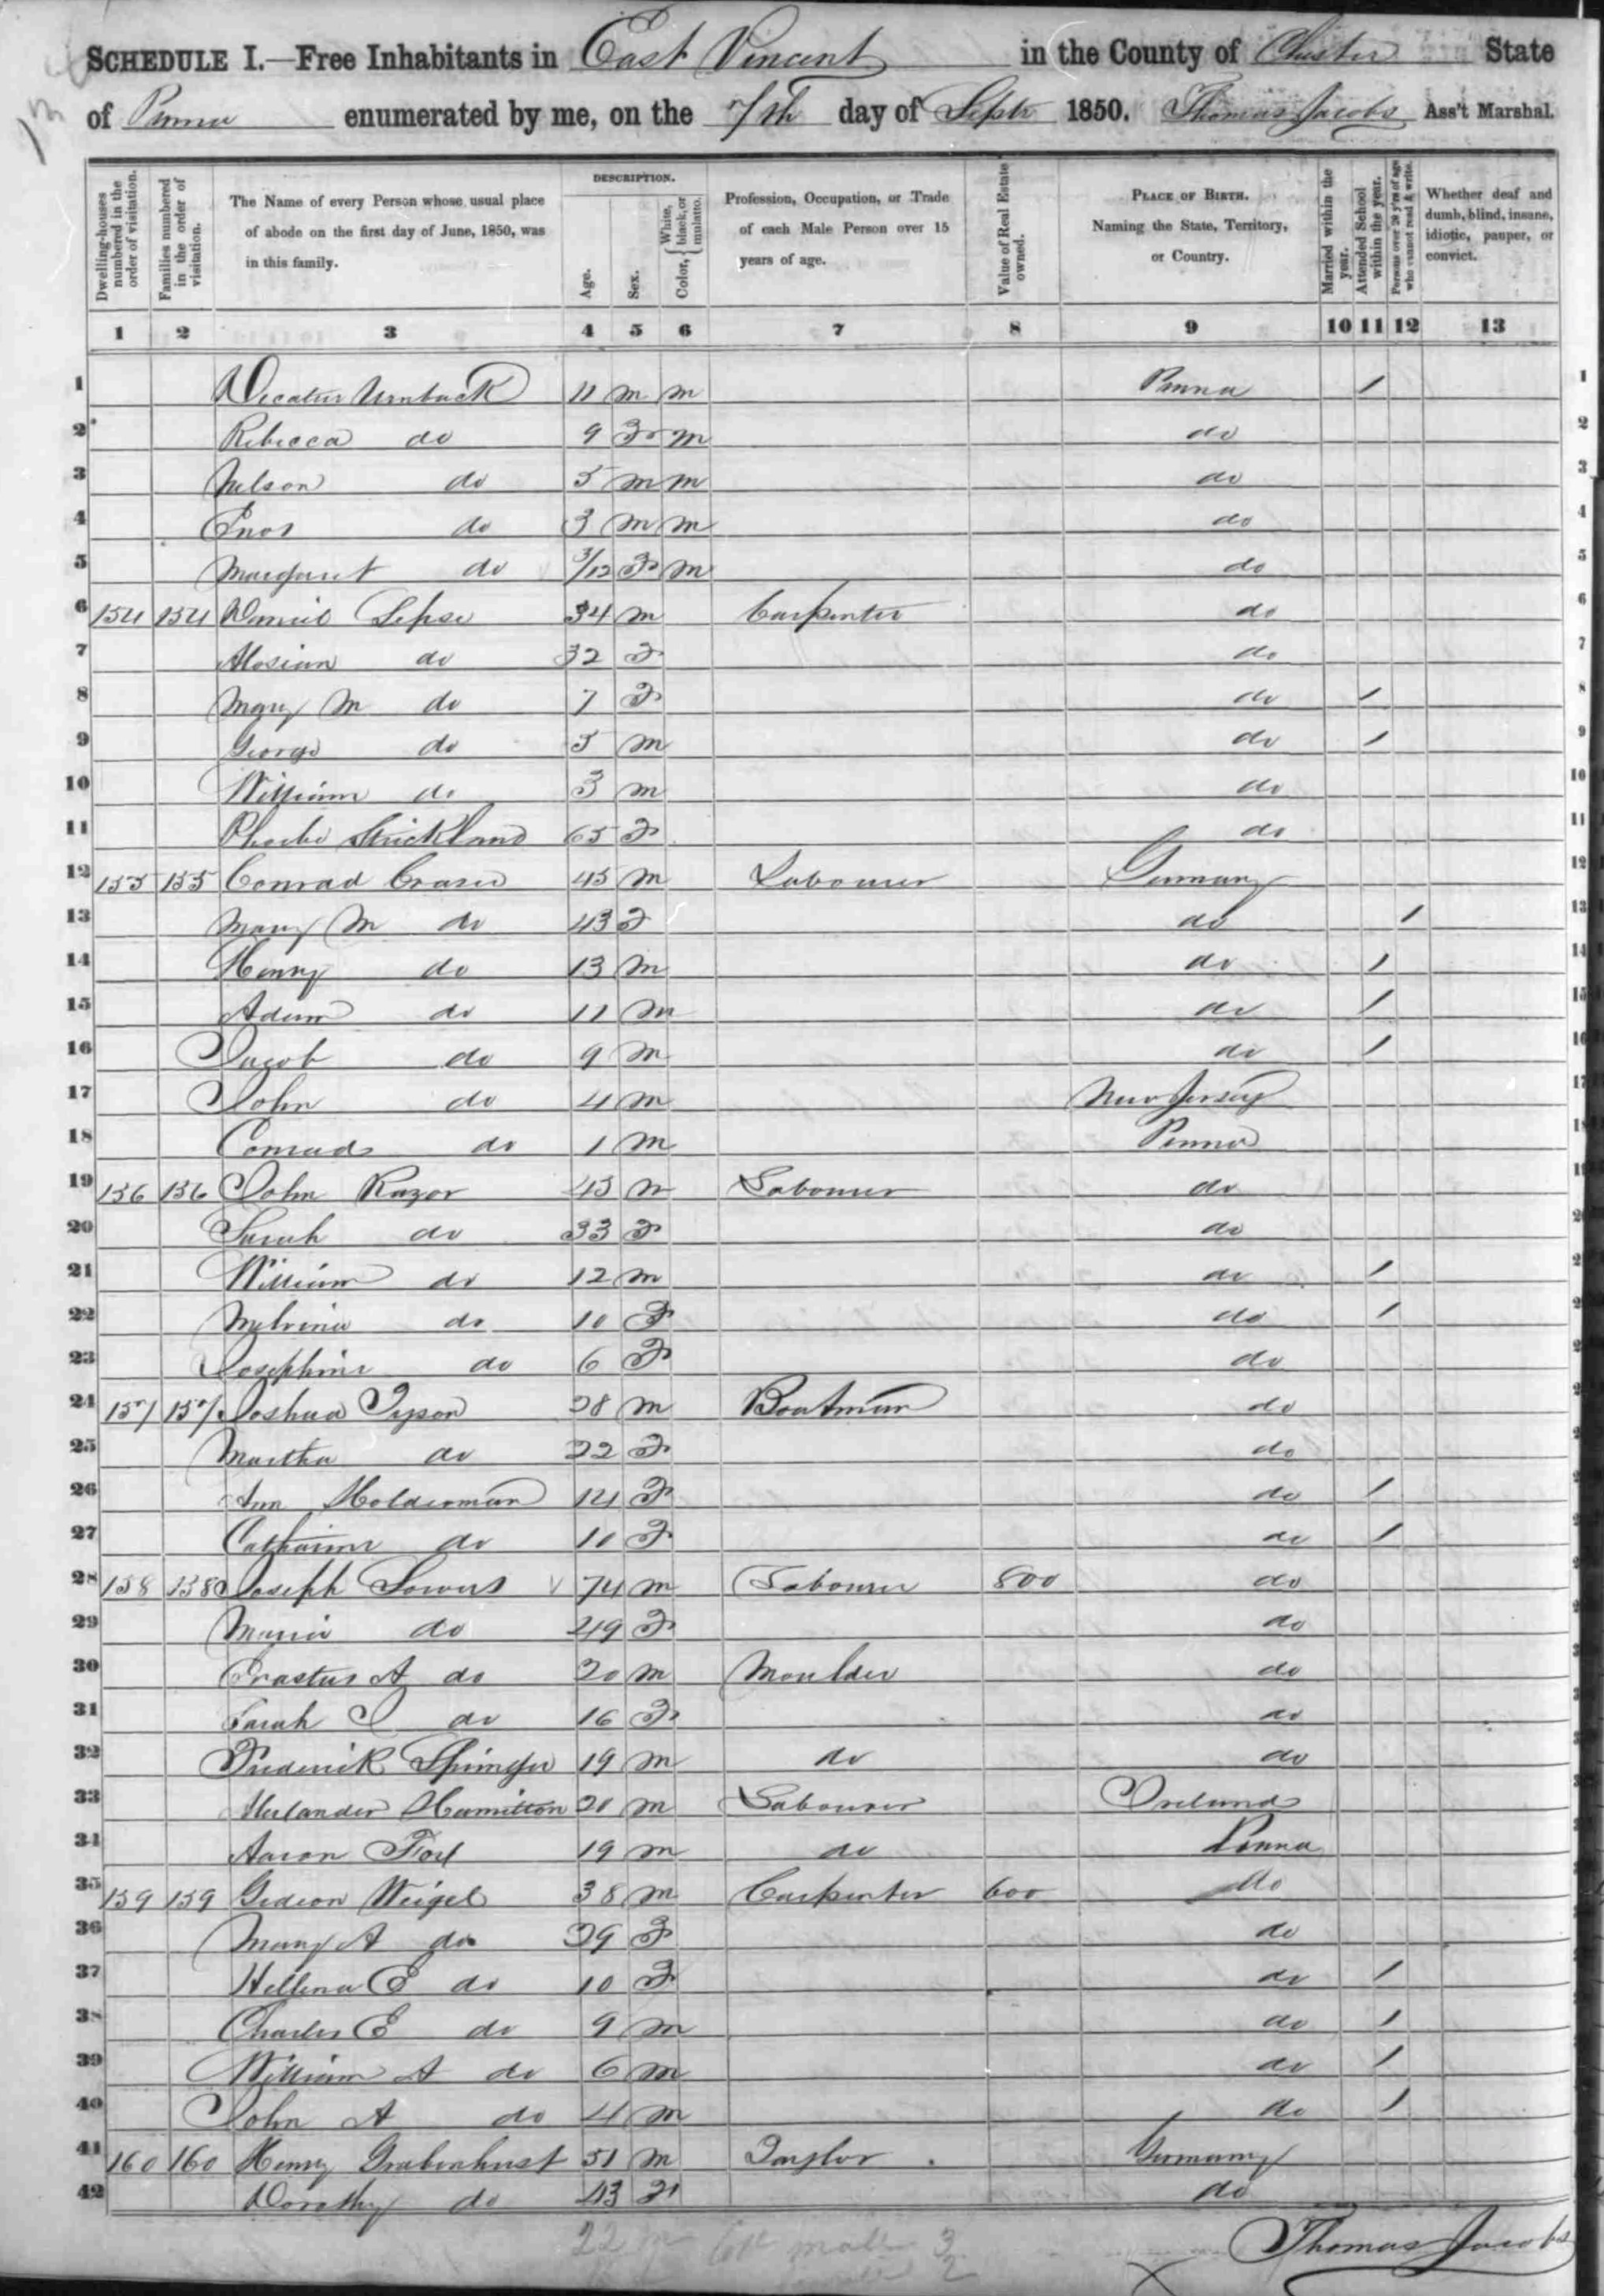 SCHEDULE I.—Free Inhabitants in East Vincent in the County of Chester State
of Penna enumerated by me, on the 7th day of Septr 1850. Thomas Jacobs Ass't Marshal.
Dwelling-houses numbered in the order of visitation.
Families numbered in the order of visitation.
The Name of every Person whose usual place of abode on the first day of June, 1850, was in this family.
DESCRIPTION.
Age.
Sex.
Color, { White, black, or mulatto.
Profession, Occupation, or Trade of each Male Person over 15 years of age.
Value of Real Estate owned.
PLACE OF BIRTH. Naming the State, Territory, or Country.
Married within the year.
Attended School within the year.
Persons over 20 y'rs of age who cannot read & write.
Whether deaf and dumb, blind, insane, idiotic, pauper, or convict.
1 2 3 4 5 6 7 8 9 10 11 12 13
1 Decatur 11 m m Penna / 1
2 Rebecca do 9 F m do 2
3 Nelson do 5 m m do 3
4 Enos do 3 m m do 4
5 Margaret do 3/12 F m do 5
6 154 154 Daniel 34 m Carpenter do 6
7 do 32 F do 7
8 Mary M do 7 F do / 8
9 George do 5 m do / 9
10 William do 3 m do 10
11 Phoebe Strickland 65 F do 11
12 155 155 Conrad 45 m Labourer Germany 12
13 Mary M do 43 F do / 13
14 Henry do 13 m do / 14
15 Adam do 11 m do / 15
16 Jacob do 9 m do / 16
17 John do 4 m New Jersey 17
18 Conrad do 1 m Penna
19 156 156 John Razor 45 m Labourer do
20 Sarah do 33 F do
21 William do 12 m do /
22 Melvina do 10 F do /
23 Josephine do 6 F do
24 157 157 Joshua Tyson 28 m Boatman do
25 Martha do 22 F do
26 Ann Holderman 14 F do /
27 Catharine do 10 F do /
28 158 158 Joseph Sowers 74 m Labourer 800 do
29 Maria do 49 F do
30 Erastus A do 20 m Moulder do
31 Sarah J do 16 F do
32 Frederick 19 m do do
33 Hamilton 20 m Labourer Ireland
34 Aaron 19 m do Penna
35 159 159 Gideon Weigel 38 m Carpenter 600 do
36 Mary A do 29 F do
37 Hellena E do 10 F do /
38 Charles E do 9 m do /
39 William A do 6 m do /
40 John A do 4 m do /
41 160 160 Henry Grabenhurst 51 m Taylor Germany
42 Dorothy do 43 F do
Thomas Jacobs